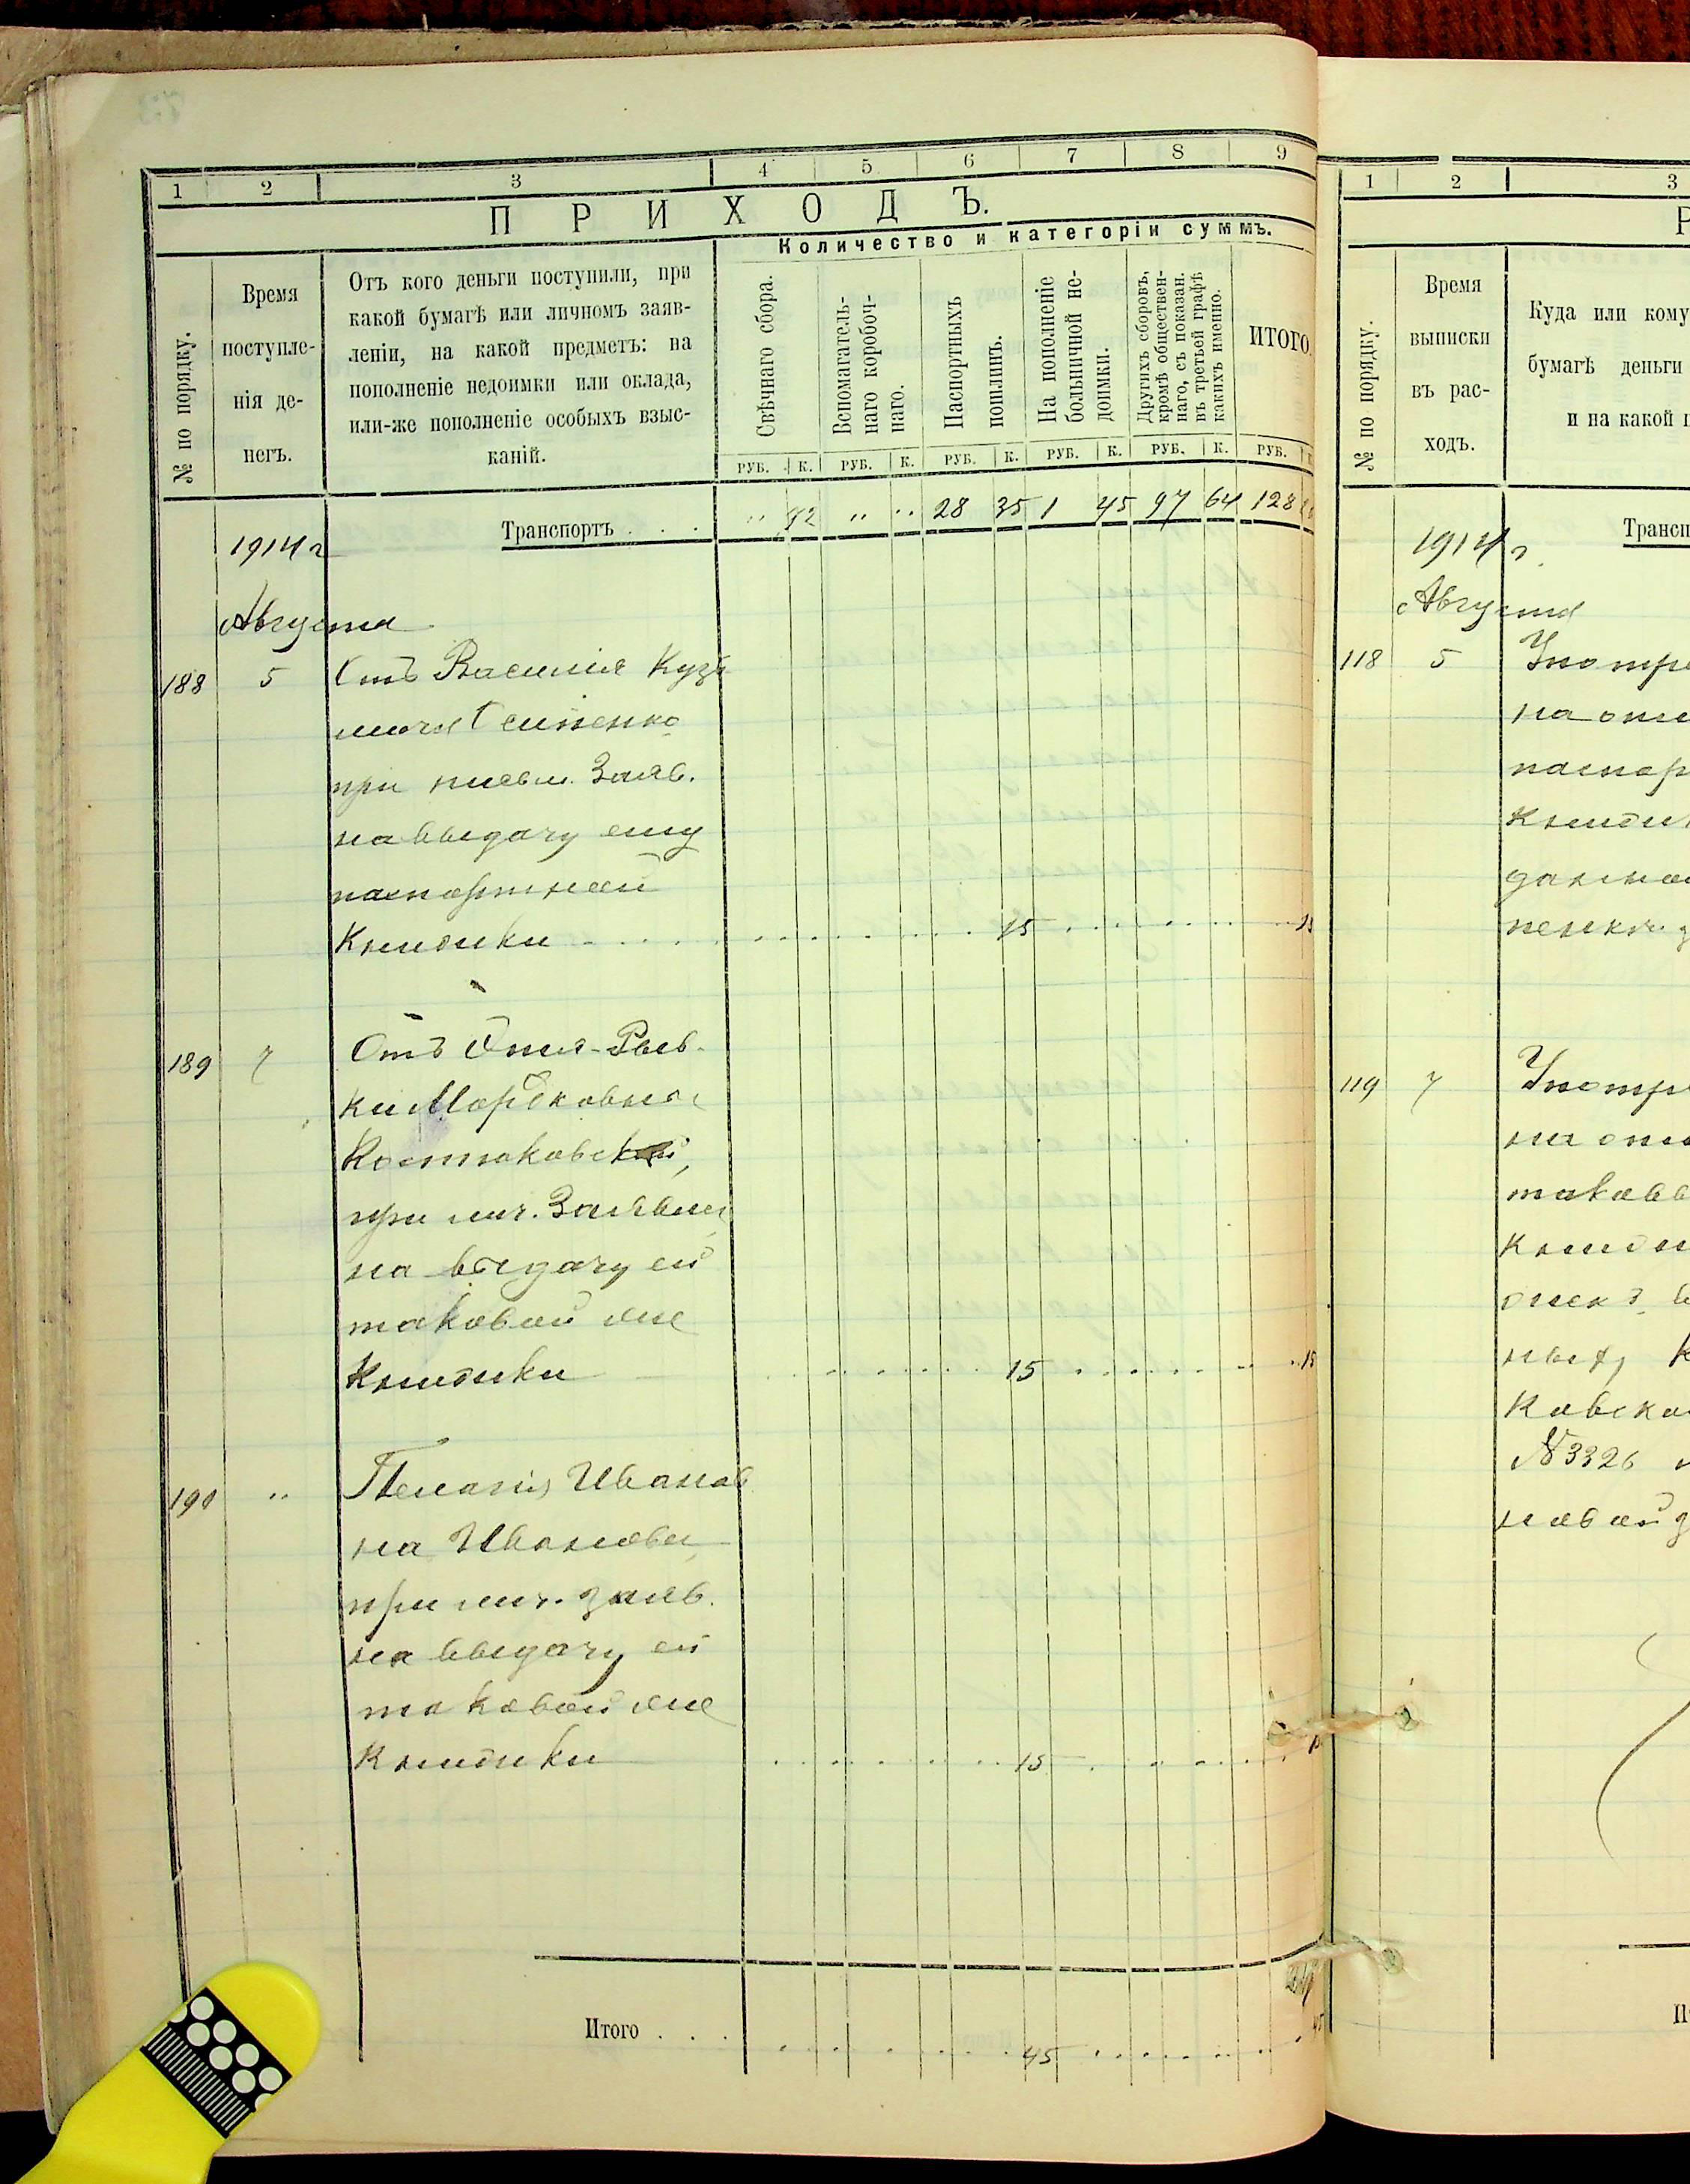 1 2 3 4 5 6 7 8 9
ПРИХОДЪ.
Количество и категоріи суммъ.
№ по порядку.
Время
поступле-
нія де-
негъ.
Отъ кого деньги поступили, при
какой бумагѣ или личномъ заяв-
леніи, на какой предметъ: на
пополненіе недоимки или оклада,
или-же пополненіе особыхъ взыс-
каній.
Свѣчнаго сбора.
Вспомагатель-
наго коробоч-
наго.
Паспортныхъ
пошлинъ.
На пополненіе
больничной не-
доимки.
Другихъ сборовъ,
кромѣ обществен-
наго, съ показан.
въ третьей графѣ
какихъ именно.
ИТОГО.
РУБ. К. РУБ. К. РУБ. К. РУБ. К. РУБ. К. РУБ.
Транспортъ . . . " 92 " " 28 35 1 45 97 64 128
1914 г
Августа
188 5 Отъ Василія Кузь
мича
при письм. Заяв.
на выдачу ему
паспортной
Книжки 15 15
189 7 Отъ
ки Мордковны
Костаковской,
при лич. Заявлен
на выдачу ей
таковой же
Книжки 15 15
190 " Пелагія Иванов
на Иванова
при лич. заяв.
на выдачу ей
таковой же
Книжки 15
Итого . . . 45 45
1 2 3
Р
№ по порядку.
Время
выписки
въ рас-
ходъ.
Куда или кому
бумагѣ деньги
и на какой
Трансп
1914 г.
Августа
118 5 Употре
на
паспор
Книжк
119 7 Употре
на
таковы
Книжк
Ковско
№ 3326